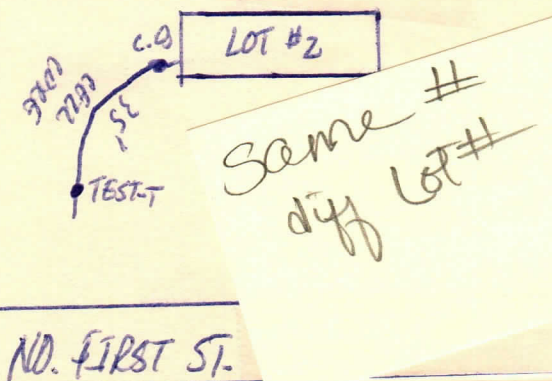 C.O
LOT #2
35'
TEST-T
Same #
diff Lot #
NO. FIRST ST.